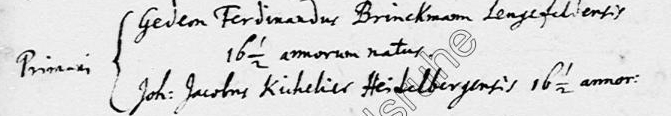 Gedeon Ferdinandus Brinckmann Lengefeldensis
Primari 16 1/2 annorum natus.
Joh: Jacobus Kichelier Heidelbergensis 16 1/2 annor: